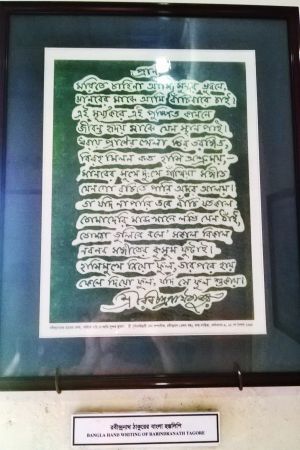 প্রাণ
মরিতে চাহিনা আমি সুন্দর ভুবনে,
মানবের মাঝে আমি বাঁচিবারে চাই।
এই সূর্য্যকরে এই পুষ্পিত কাননে
জীবন্ত হৃদয় মাঝে যেন স্থান পাই।
ধরায় প্রাণের খেলা চির তরঙ্গিত,
বিরহ মিলন কত হাসি অশ্রুময়,
মানবের সুখে দুঃখে গাঁথিয়া সঙ্গীত
যেন গো রচিতে পারি অমর আলয়।
তা যদি না পারি তবে বাঁচি যতকাল
তোমাদেরি মাঝখানে লভি যেন ঠাঁই,
তোমরা তুলিবে বলে সকাল বিকাল
নবনব সঙ্গীতের কুসুম ফুটাই।
হাসিমুখে নিয়ো ফুল, তার পরে হায়
ফেলে দিয়ো ফুল, যদি সে ফুল শুকায়।
শ্রীরবীন্দ্রনাথ ঠাকুর
রবীন্দ্রনাথ ঠাকুরের বাংলা হস্তলিপি
BANGLA HAND WRITING OF RABINDRANATH TAGORE